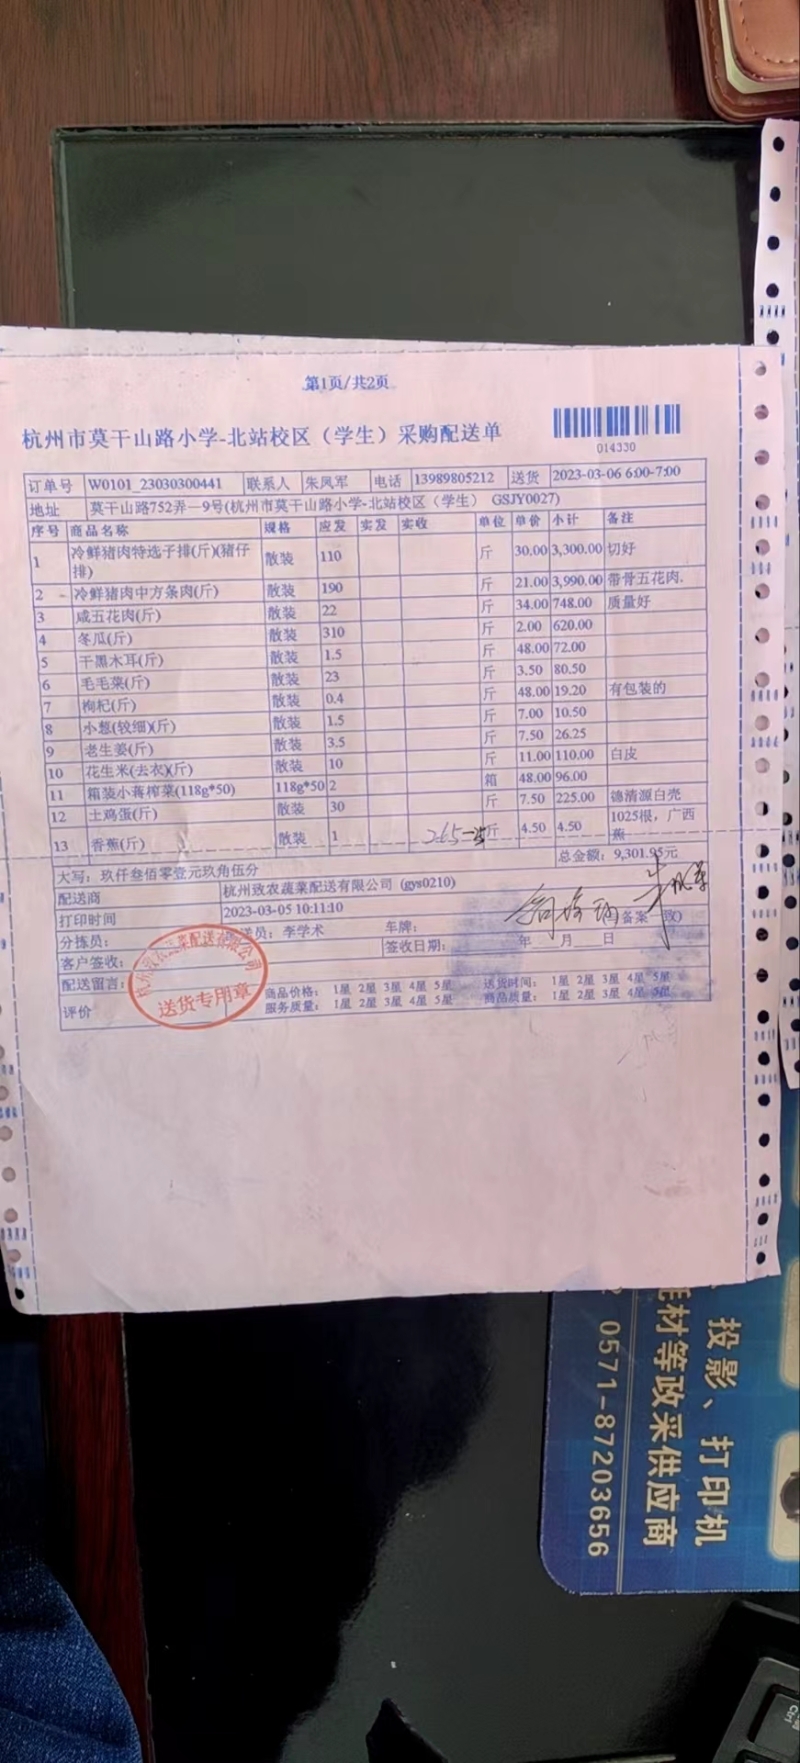 第1页/共2页
杭州市莫干山路小学-北站校区（学生）采购配送单
014330
订单号 W0101_23030300441 联系人 朱凤军 电话 13989805212 送货 2023-03-06 6:00-7:00
地址 莫干山路752弄一9号(杭州市莫干山路小学-北站校区（学生） GSJY0027)
序号 商品名称 规格 应发 实发 实收 单位 单价 小计 备注
1 冷鲜猪肉特选子排(斤)(猪仔排) 散装 110 斤 30.00 3,300.00 切好
2 冷鲜猪肉中方条肉(斤) 散装 190 斤 21.00 3,990.00 带骨五花肉.
3 咸五花肉(斤) 散装 22 斤 34.00 748.00 质量好
4 冬瓜(斤) 散装 310 斤 2.00 620.00
5 干黑木耳(斤) 散装 1.5 斤 48.00 72.00
6 毛毛菜(斤) 散装 23 斤 3.50 80.50
7 枸杞(斤) 散装 0.4 斤 48.00 19.20 有包装的
8 小葱(较细)(斤) 散装 1.5 斤 7.00 10.50
9 老生姜(斤) 散装 3.5 斤 7.50 26.25
10 花生米(去衣)(斤) 散装 10 斤 11.00 110.00 白皮
11 箱装小蒋榨菜(118g*50) 118g*50 2 箱 48.00 96.00
12 土鸡蛋(斤) 散装 30 斤 7.50 225.00 德清源白壳
13 香蕉(斤) 散装 1 265 斤 4.50 4.50 1025根，广西蕉
大写：玖仟叁佰零壹元玖角伍分 总金额：9,301.95元
配送商 杭州致农蔬菜配送有限公司 (gys0210)
打印时间 2023-03-05 10:11:10 备案
分拣员： 送员：李学术 车牌：
客户签收： 签收日期： 年 月 日
配送留言：
评价 商品价格： 1星 2星 3星 4星 5星 送货时间： 1星 2星 3星 4星 5星
服务质量： 1星 2星 3星 4星 5星 商品质量： 1星 2星 3星 4星 5星
送货专用章
投影、打印机
耗材等政采供应商
0571-87203656
Ctrl